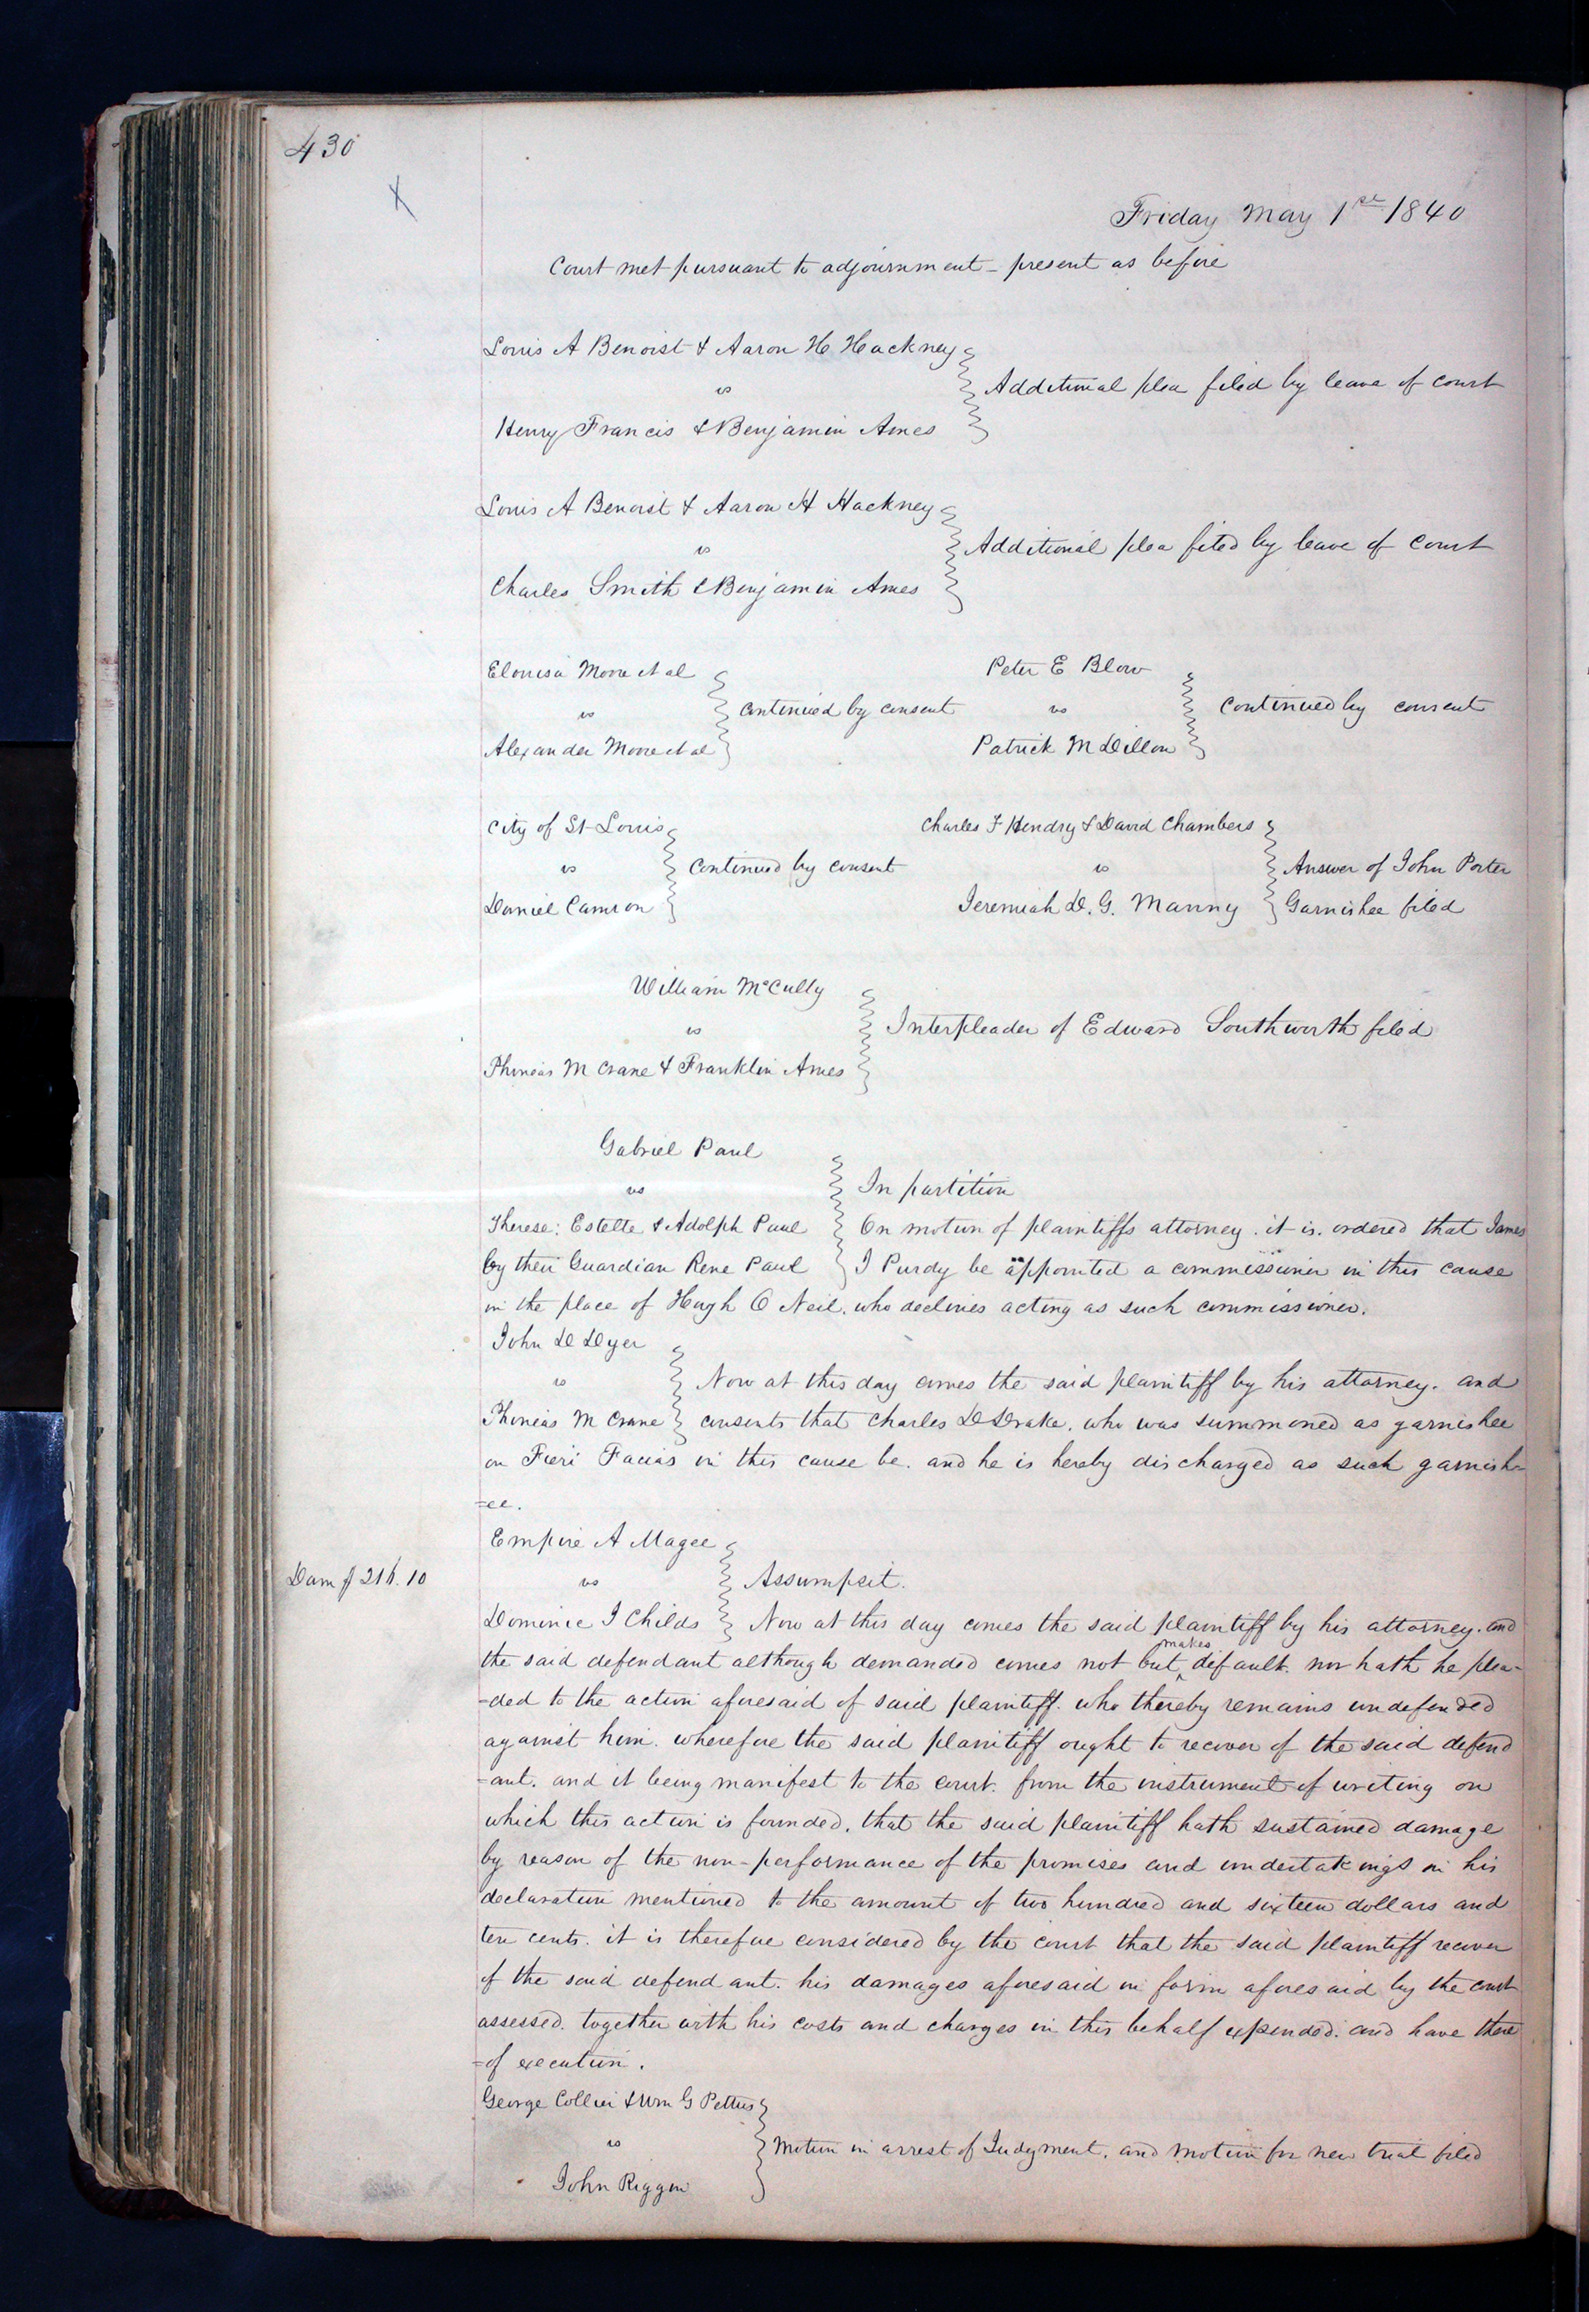 430
Friday May 1st 1840
Court met pursuant to adjournment - present as before
Louis A Benoist & Aaron H Hackney
vs
Additional plea filed by leave of court
Henry Francis & Benjamin Ames
Louis A Benoist & Aaron H Hackney
vs
Additional plea filed by leave of Court
Charles Smith & Benjamin Ames
Elouisa Moore et al
vs
continued by consent
Alexander Moore et al
Peter E Blow
vs
continued by consent
Patrick M Dillon
City of St Louis
vs
continued by consent
Daniel Camron
Charles F Hendry & David Chambers
vs
Answer of John Porter
Jeremiah D. G. Manny
Garnishee filed
William McCully
vs
Interpleader of Edward Southworth filed
Phineas M Crane & Franklin Ames
Gabriel Paul
vs
In partition
Therese: Estelle & Adolph Paul
On motion of plaintiffs attorney. it is. ordered that James
by their Guardian Rene Paul
J Purdy be appointed a commissioner in this cause
in the place of Hugh O Neil. who declines acting as such commissioner.
John D Dyer
vs
Now at this day comes the said plaintiff by his attorney. and
Phineas M Crane
consents that Charles D Drake. who was summoned as garnishee
on Fieri Facias in this cause be. and he is hereby discharged as such garnish=
=ee.
Empire A Magee
Dam $ 216.10
vs
Assumpsit.
Dominic J Childs
Now at this day comes the said plaintiff by his attorney. and
the said defendant although demanded comes not but makes default. nor hath he plea-
-ded to the action aforesaid of said plaintiff. who thereby remains undefended
against him. wherefore the said plaintiff ought to recover of the said defend
=ant. and it being manifest to the court. from the instrument of writing on
which this action is founded. that the said plaintiff hath sustained damage
by reason of the non-performance of the promises and undertakings in his
declaration mentioned to the amount of two hundred and sixteen dollars and
ten cents. it is therefore considered by the court that the said plaintiff recover
of the said defendant. his damages aforesaid in form aforesaid by the court
assessed. together with his costs and charges in this behalf expended. and have there
=of execution.
George Collier & Wm G Pettus
vs
Motion in arrest of Judgment. and motion for new trial filed
John Riggin